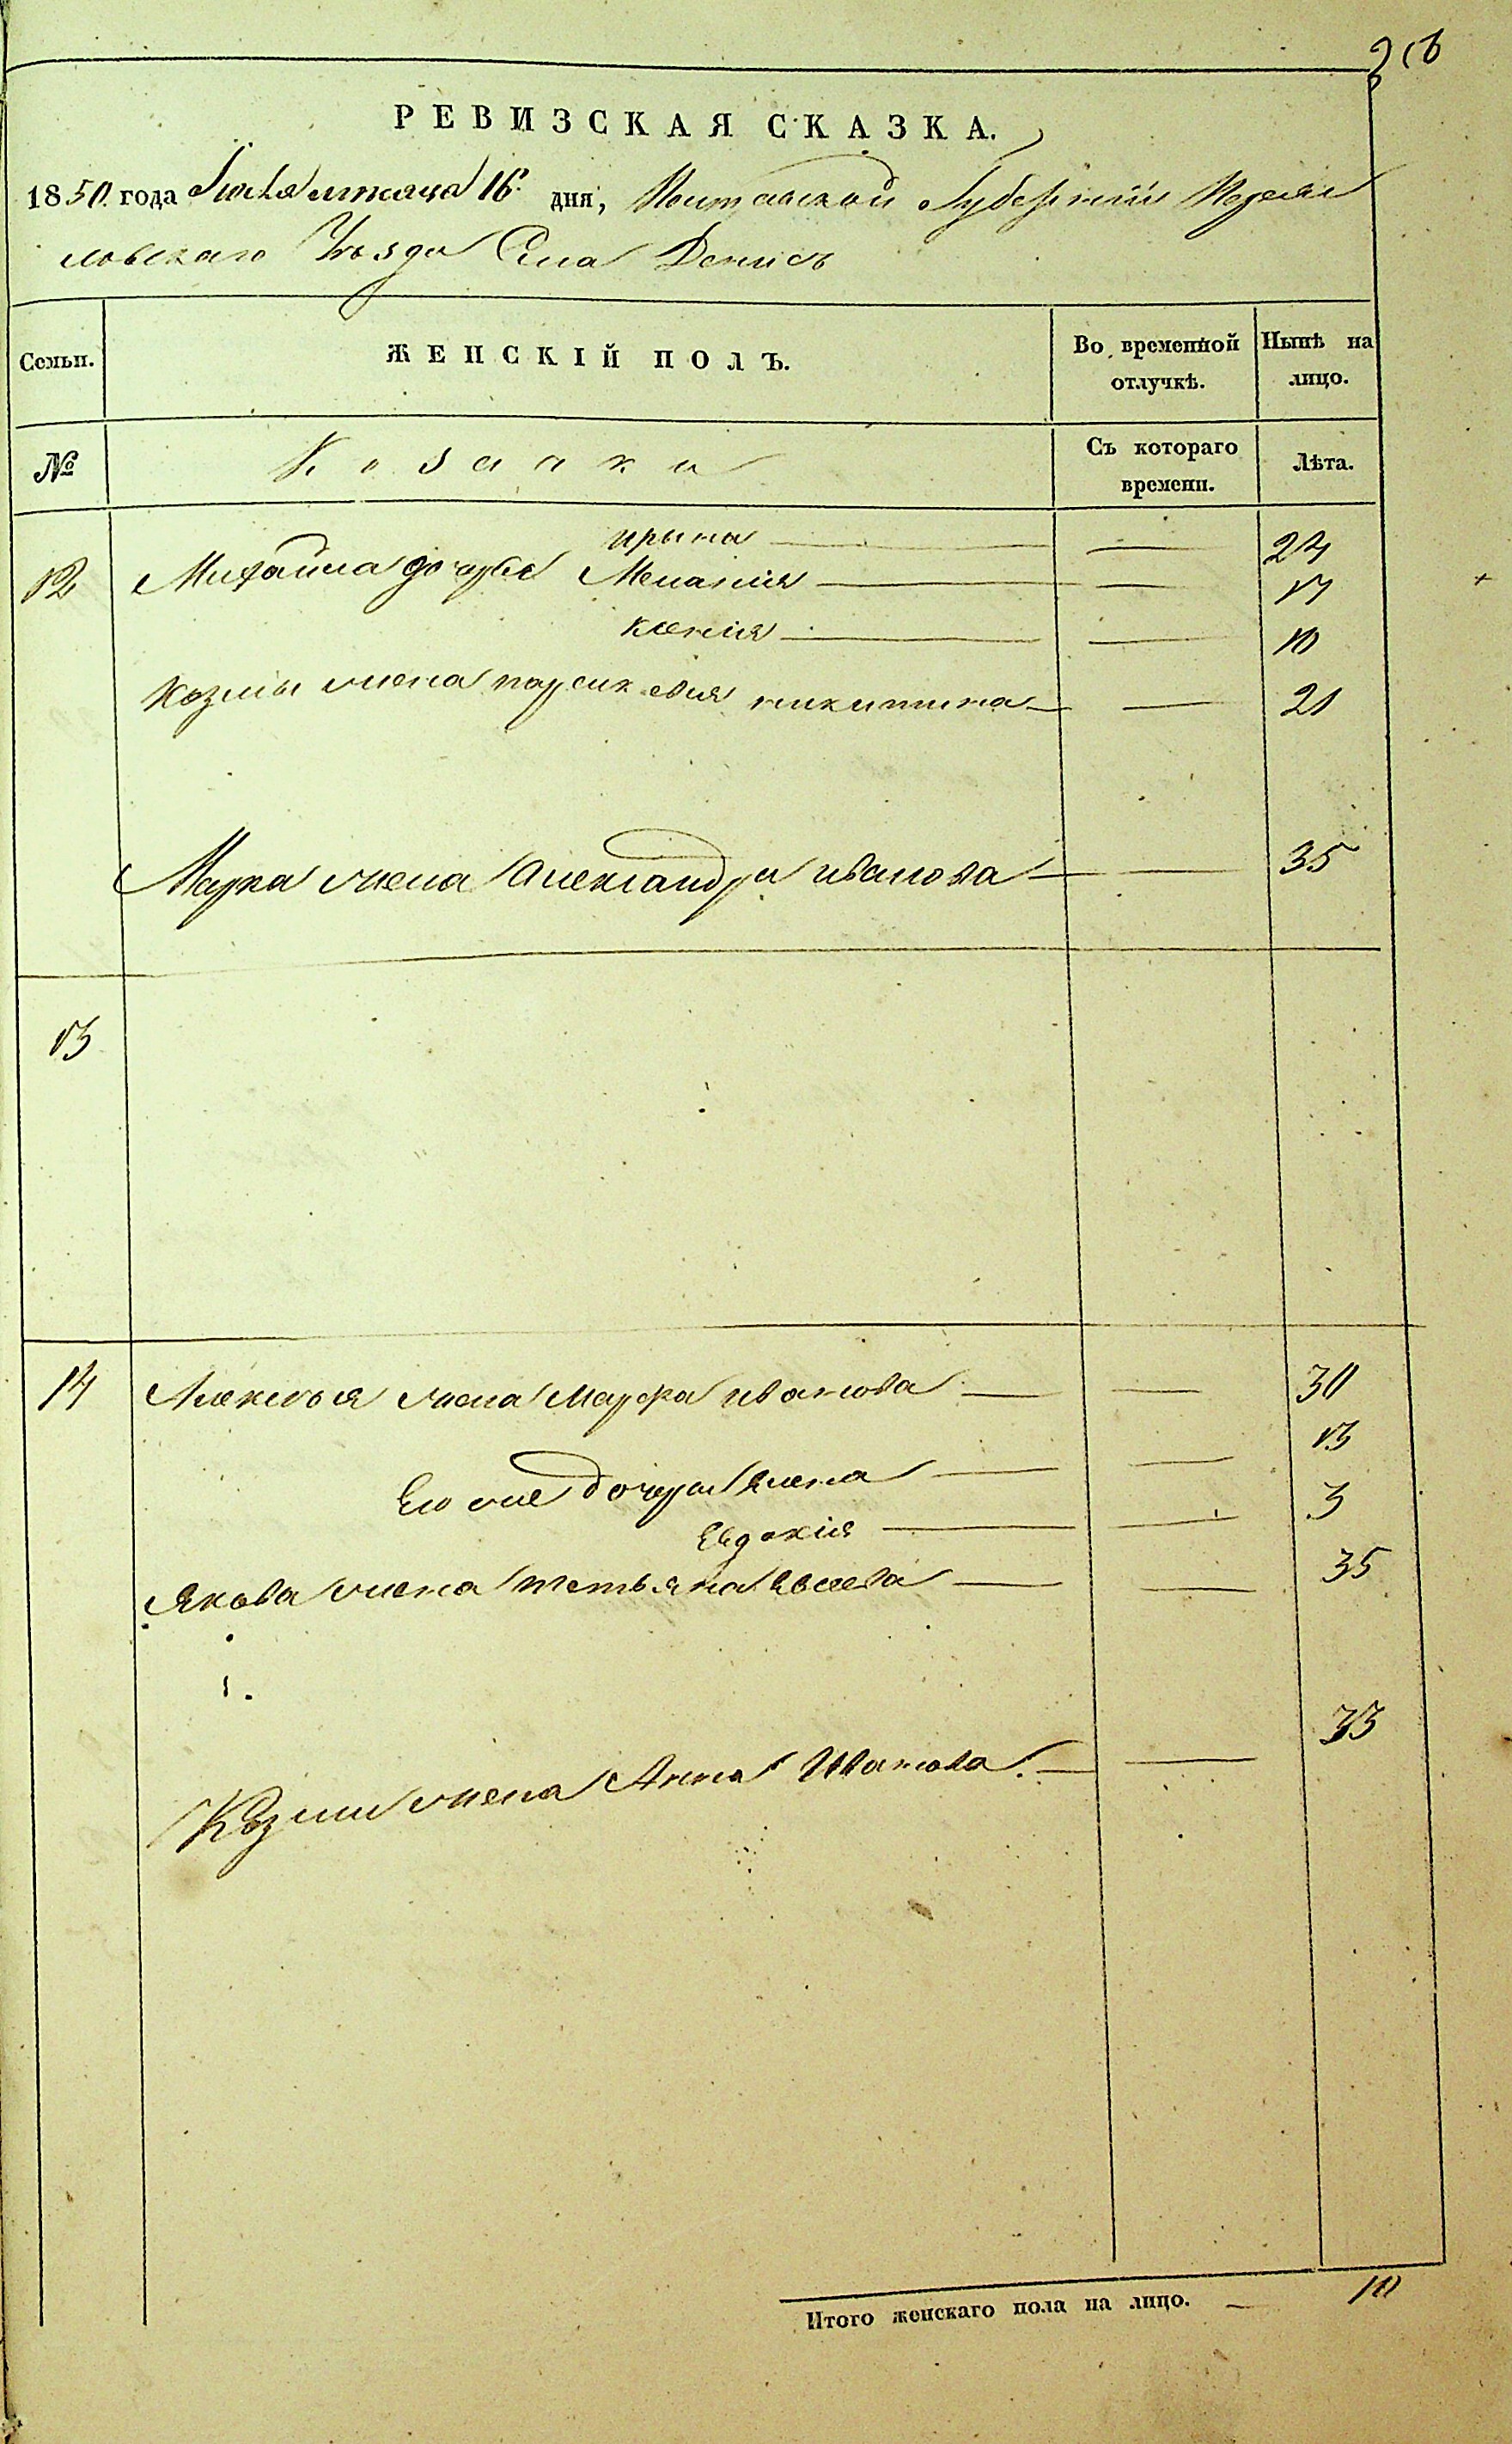 РЕВИЗСКАЯ СКАЗКА.
1850 года Іюля мѣсяца 16 дня, Полтавской Губерніи Переяс
ловскаго Уѣзда Села Денисъ
Семьи. ЖЕНСКІЙ ПОЛЪ. Во временной отлучкѣ. Нынѣ на лицо.
№ Козаки Съ котораго времени. Лѣта.
ирына — — 24
12 Михайла дочери Меланія — — 17
ксенія — — 10
Козмы жена параскевия никитина — — 21
Марка жена Александра иванова — — 35
13
14 Алексѣя жена Марфа иванова — — 30
Его же дочери Елена — — 13
Евдокія — — 3
Якова жена татьяна Евсеева — — 35
Козми жена Анна Иванова. — — 33
Итого женскаго пола на лицо. — 10